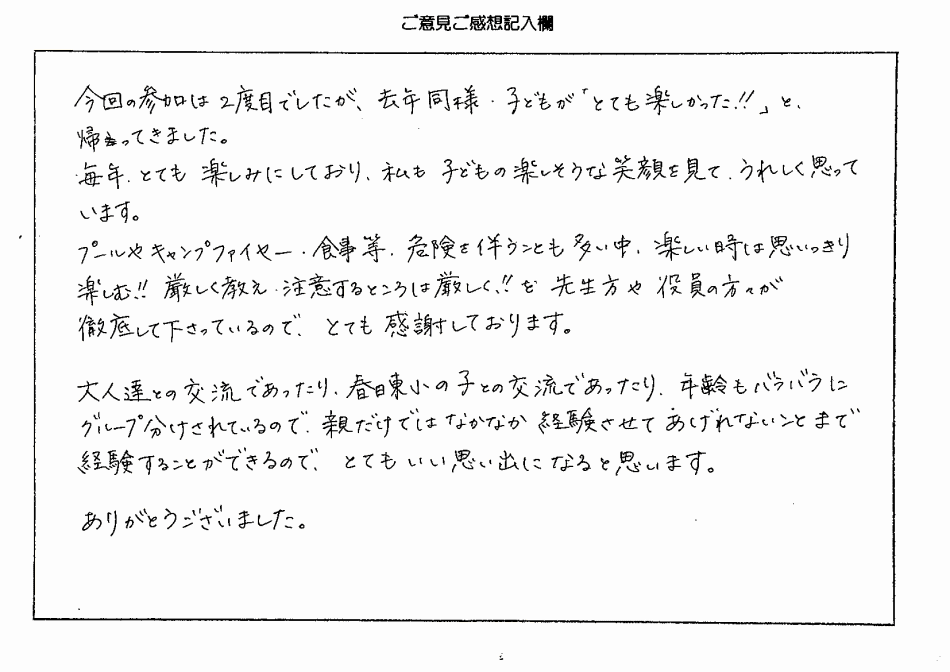 ご意見ご感想記入欄
今回の参加は2度目でしたが、去年同様、子どもが「とても楽しかった!!」と、
帰ってきました。
毎年、とても楽しみにしており、私も子どもの楽しそうな笑顔を見て、うれしく思って
います。
プールやキャンプファイヤー、食事等、危険を伴うことも多い中、楽しい時は思いっきり
楽しむ!!厳しく教え、注意するところは厳しく!!を先生方や役員の方々が
徹底して下さっているので、とても感謝しております。
大人達との交流であったり、春日東小の子との交流であったり、年齢もバラバラに
グループ分けされているので、親だけではなかなか経験させてあげれないことまで
経験することができるので、とてもいい思い出になると思います。
ありがとうございました。